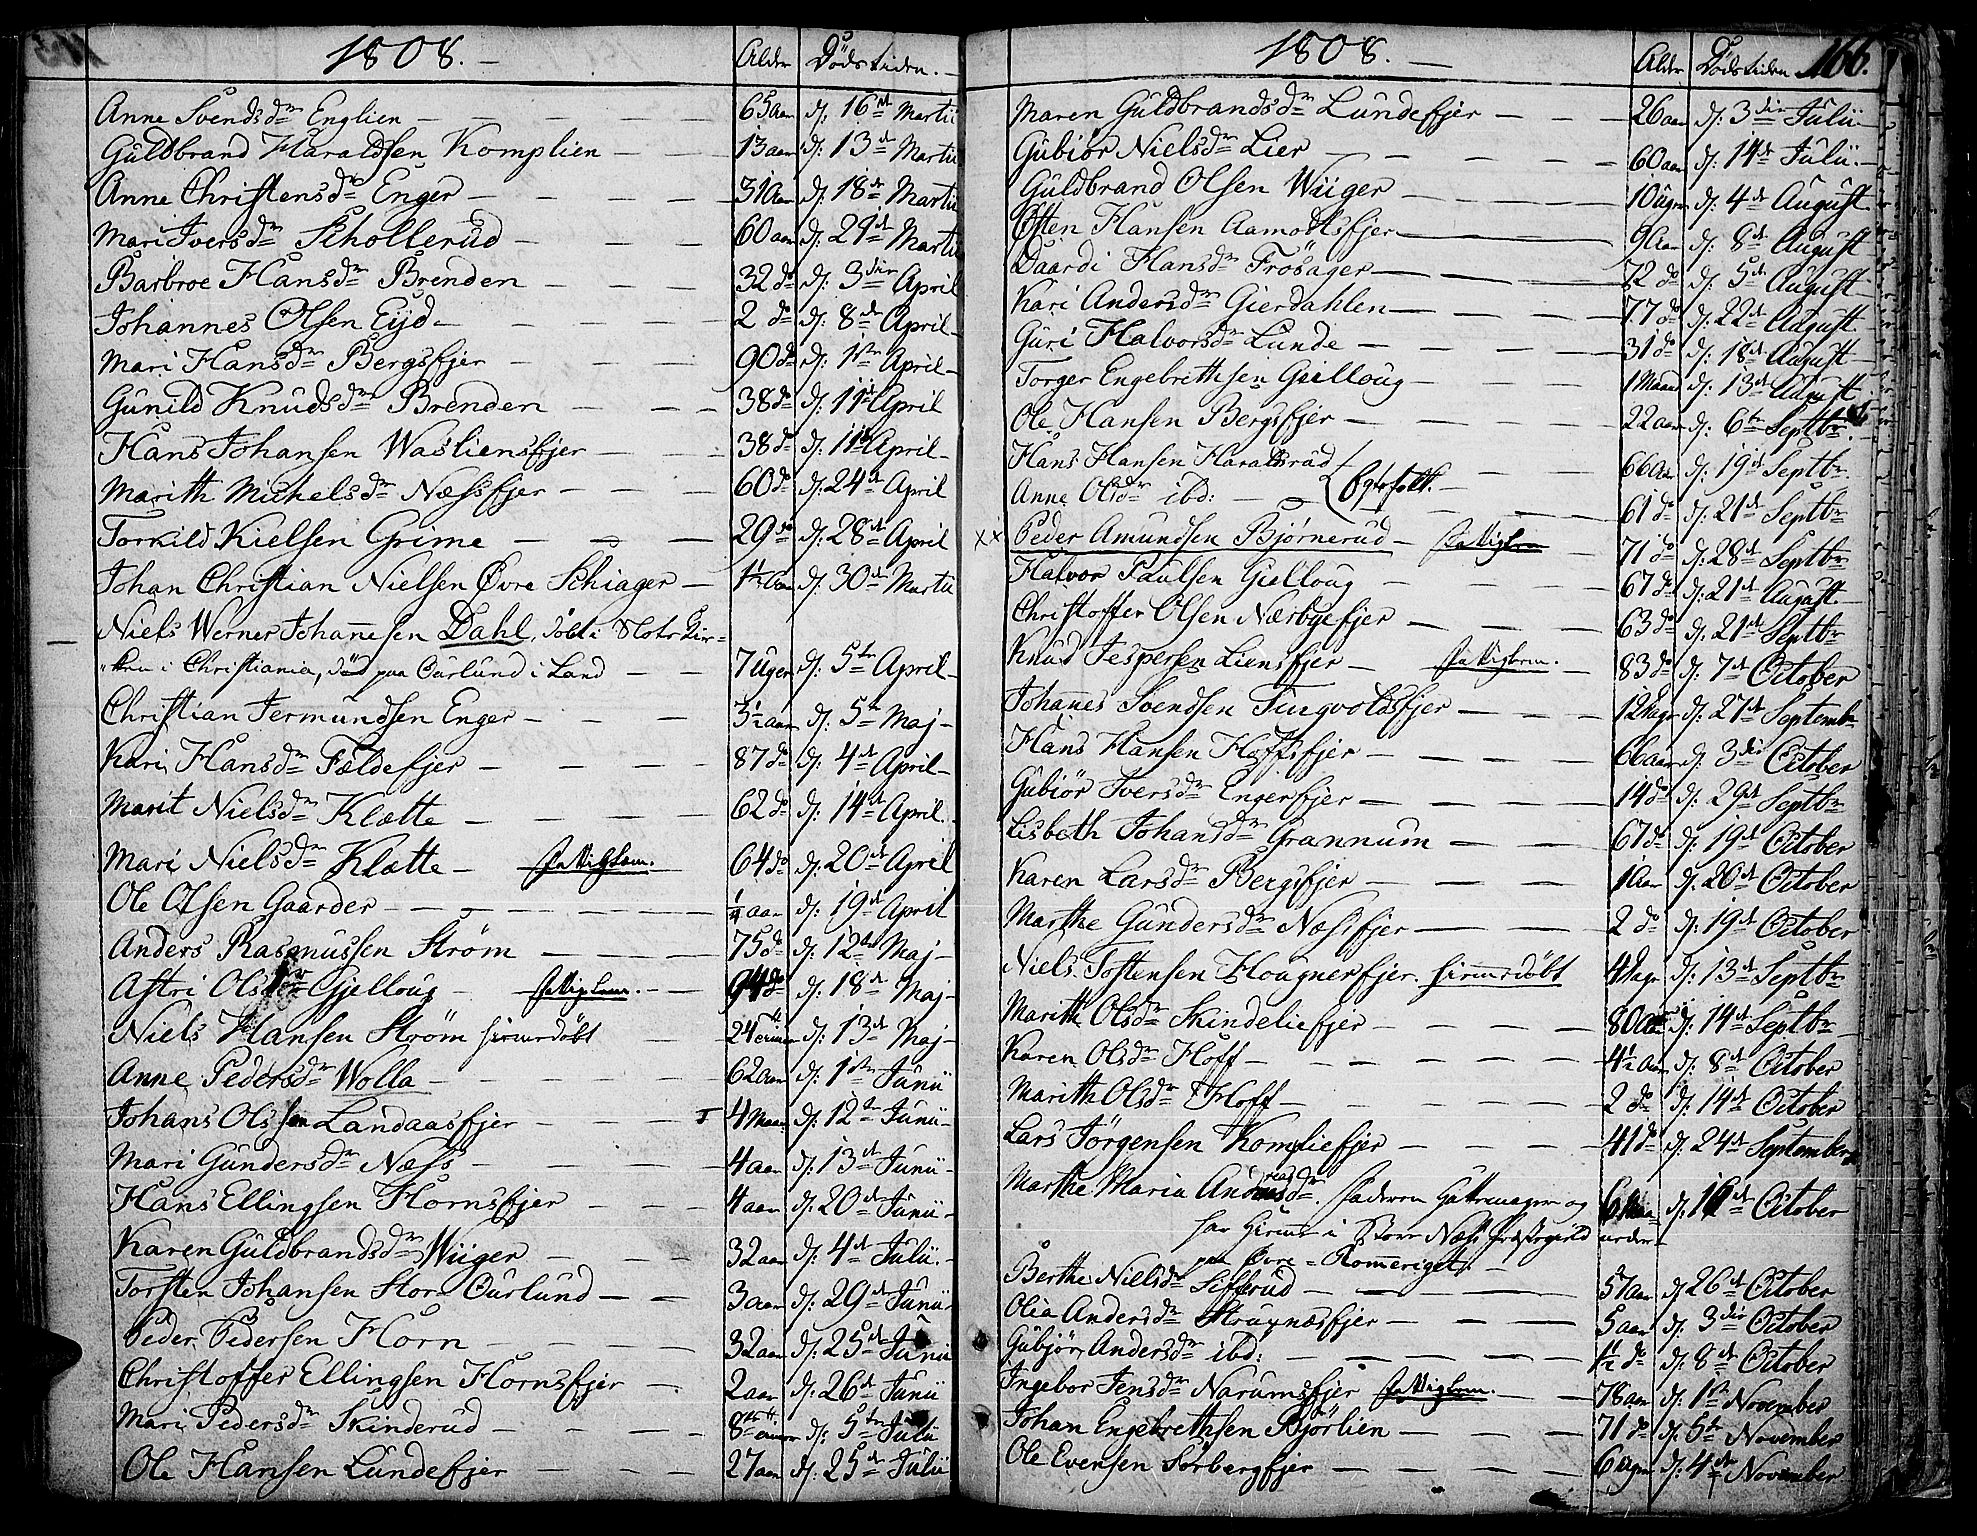 1808. Alder Dödstiden.
Anne Svendsdr Englien 65 aar d: 16de Martii
Guldbrand Haraldsen Komplien 13 aar d: 13de Martii
Anne Christensdr Enger 31 aar d: 18de Martii
Mari Iversdr Schollerud 60 aar d: 29de Martii
Barbroe Hansdr Brenden 32 do d: 3die April
Johannes Olsen Eijd 2 do d: 8de April
Mari Hansdr Bergsejer 90 do d: 1ste April
Gunild Knudsdr Brenden 38 do d: 11te April
Hans Johansen Wasliensejer 38 do d: 11te April
Marith Michelsdr Næssejer 60 do d: 24de April
Torkild Kielsen Grime 29 do d: 28de April
Johan Christian Nielsen Øvre Schiager 1½ aar d: 30de Martii
Niels Werner Johannesen Dahl, döbt i Slots Kir-
ken i Christiania, död paa Ourlund i Land 7 Uger d: 5te April
Christian Jermundsen Enger 3½ aar d: 5te Maj
Kari Hansdr Fældeejer 87 do d: 4de April
Marit Nielsdr Klætte 62 do d: 14de April
Mari Nielsdr Klætte fattiglem. 64 do d: 20de April
Ole Olsen Gaarder ¼ aar d: 19de April
Anders Rasmussen Ström 75 do d: 12te Maj
Astri Olsdr Gjelloug fattiglem. 94 do d: 18de Maj
Niels Hansen Ström hiemedöbt 24 timer d: 13de Maj
Anne Pedersdr Wolla 62 aar d: 1ste Junii
Johans Olssen Landaasejer 4 Maan d: 12te Junii
Mari Gundersdr Næss 4 aar d: 13de Junii
Hans Ellingsen Hornsejer 4 aar d: 20de Junii
Karen Guldbrandsdr Wiiger 32 aar d: 4de Julii
Torsten Johansen Stor Ourlund 3 aar d: 29de Junii
Peder Pedersen Horn 32 aar d: 25de Junii
Christoffer Ellingsen Hornsejer 2 aar d: 26de Junii
Mari Pedersdr Skinderud 8 d: 5te Julii
Ole Hansen Lundeejer 27 aar d: 25de Julii
1808. Alder Dödstiden 166.
Maren Guldbrandsdr Lundeejer 26 aar d: 3die Julii
Gubiör Nielsdr Lier 60 aar d: 14de Julii
Guldbrand Olsen Wiiger 10 Uger d: 4de August
Østen Hansen Aamodtsejer 9 aar d: 8de August
Daardi Hansdr Frösager 72 do d: 5te August
Kari Andersdr Gierdahlen 77 do d: 22de August
Guri Halvorsdr Lunde 31 do d: 18de August
Torger Engebrethsen Gielloug 1 Maan d: 13de August
Ole Hansen Bergsejer 22 aar d: 6te Septbr
Hans Hansen Haraldsrud 66 aar d: 19de Septbr
Anne Olsdr ibd: Egtefolk. 61 do d: 21de Septbr
xx Peder Amundsen Bjørnerud fattiglem 71 do d: 28de Septbr
Halvor Paulsen Gielloug 67 do d: 21de August
Christoffer Olsen Næsbyeejer 63 do d: 21de Septbr
Knud Jespersen Liensejer fattiglem. 83 do d: 7de October
Johannes Svendsen Tingvoldsejer 12 dage d: 27de Septembr
Hans Hansen Hoffsejer 66 aar d: 3die October
Gubiör Iversdr Engerejer 14 do d: 29de Septbr
Lisbeth Johansdr Grannum 67 do d: 19de October
Karen Larsdr Bergsejer 1 aar d: 20de October
Marthe Gundersdr Næsejer 2 do d: 19de October
Niels Tostensen Hougnerejer hiemedöbt 4 dage d: 13de Septbr
Marith Olsdr Skindelieejer 80 aar d: 14de Septbr
Karen Olsdr Hoff 4½ aar d: 8de October
Marith Olsdr Hoff 2 do d: 14de October
Lars Jörgensen Komlieejer 41 do d: 24de September
Marthe Maria Andreasdr. faderen Hattemager og 6 Maan d: 16de October
har hiemme i Store Næss Præstegield
paa Øvre-Romeriget.
Berthe Nielsdr Sifferud 57 aar d: 26de October
Olia Andersdr Strugnæsejer 5 aar d: 3die October
Gubjör Andersdr ibd: 1½ do d: 8de October
Ingebor Jensdr Narumsejer fattiglem. 78 aar d: 1ste November
Johan Engebrethsen Bjørlien 71 do d: 5te November
Ole Evensen Sörbergejer 6 Uger d: 4de November